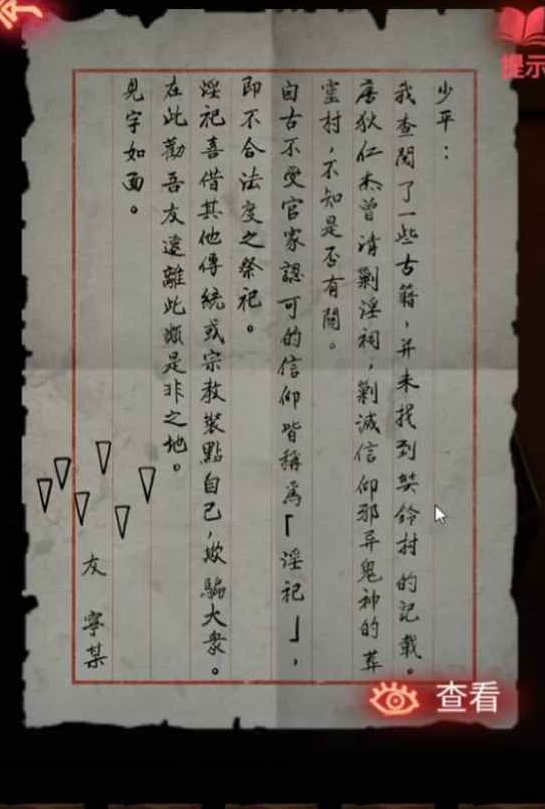 少平：
我查閱了一些古籍，并未找到奘鈴村的記載。
唐狄仁杰曾清剿淫祠，剿滅信仰邪异鬼神的葬
霊村，不知是否有關。
自古不受官家認可的信仰皆稱爲「淫祀」，
即不合法度之祭祀。
淫祀喜借其他傳統或宗教裝點自己，欺騙大衆。
在此勸吾友遠離此類是非之地。
見字如面。
友 寧某
提示
查看